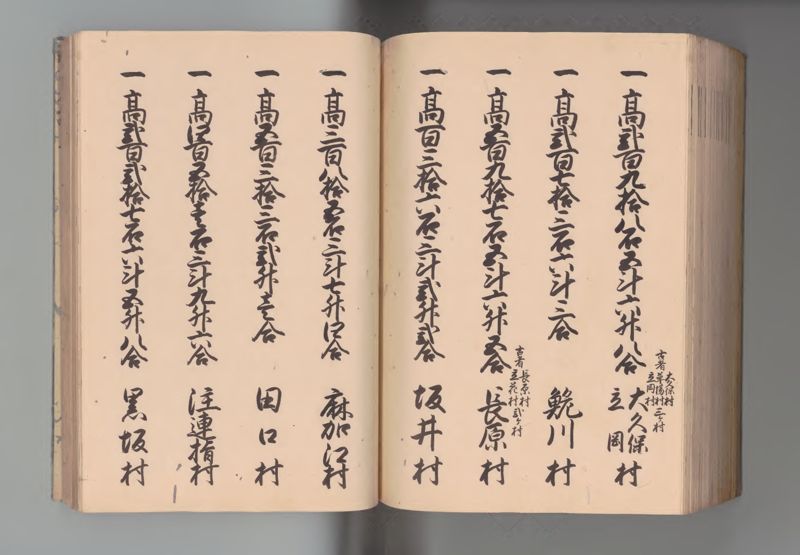 一 高弐百九拾八石五斗六升八合 大久保 立岡 村
古者 大久保村 草場村 立岡村 三ヶ村
一 高弐百七拾三石六斗三合 鮠川村
一 高五百九拾七石五斗六升五合 長原村
古者 長原村 立花村 弐ヶ村
一 高百三拾六石三斗弐升弐合 坂井村
一 高三百八拾五石三斗七升四合 麻加江村
一 高五百三拾三石弐升壱合 田口村
一 高四百五拾壱石三斗九升六合 注連指村
一 高弐百弐拾七石六斗五升八合 黒坂村